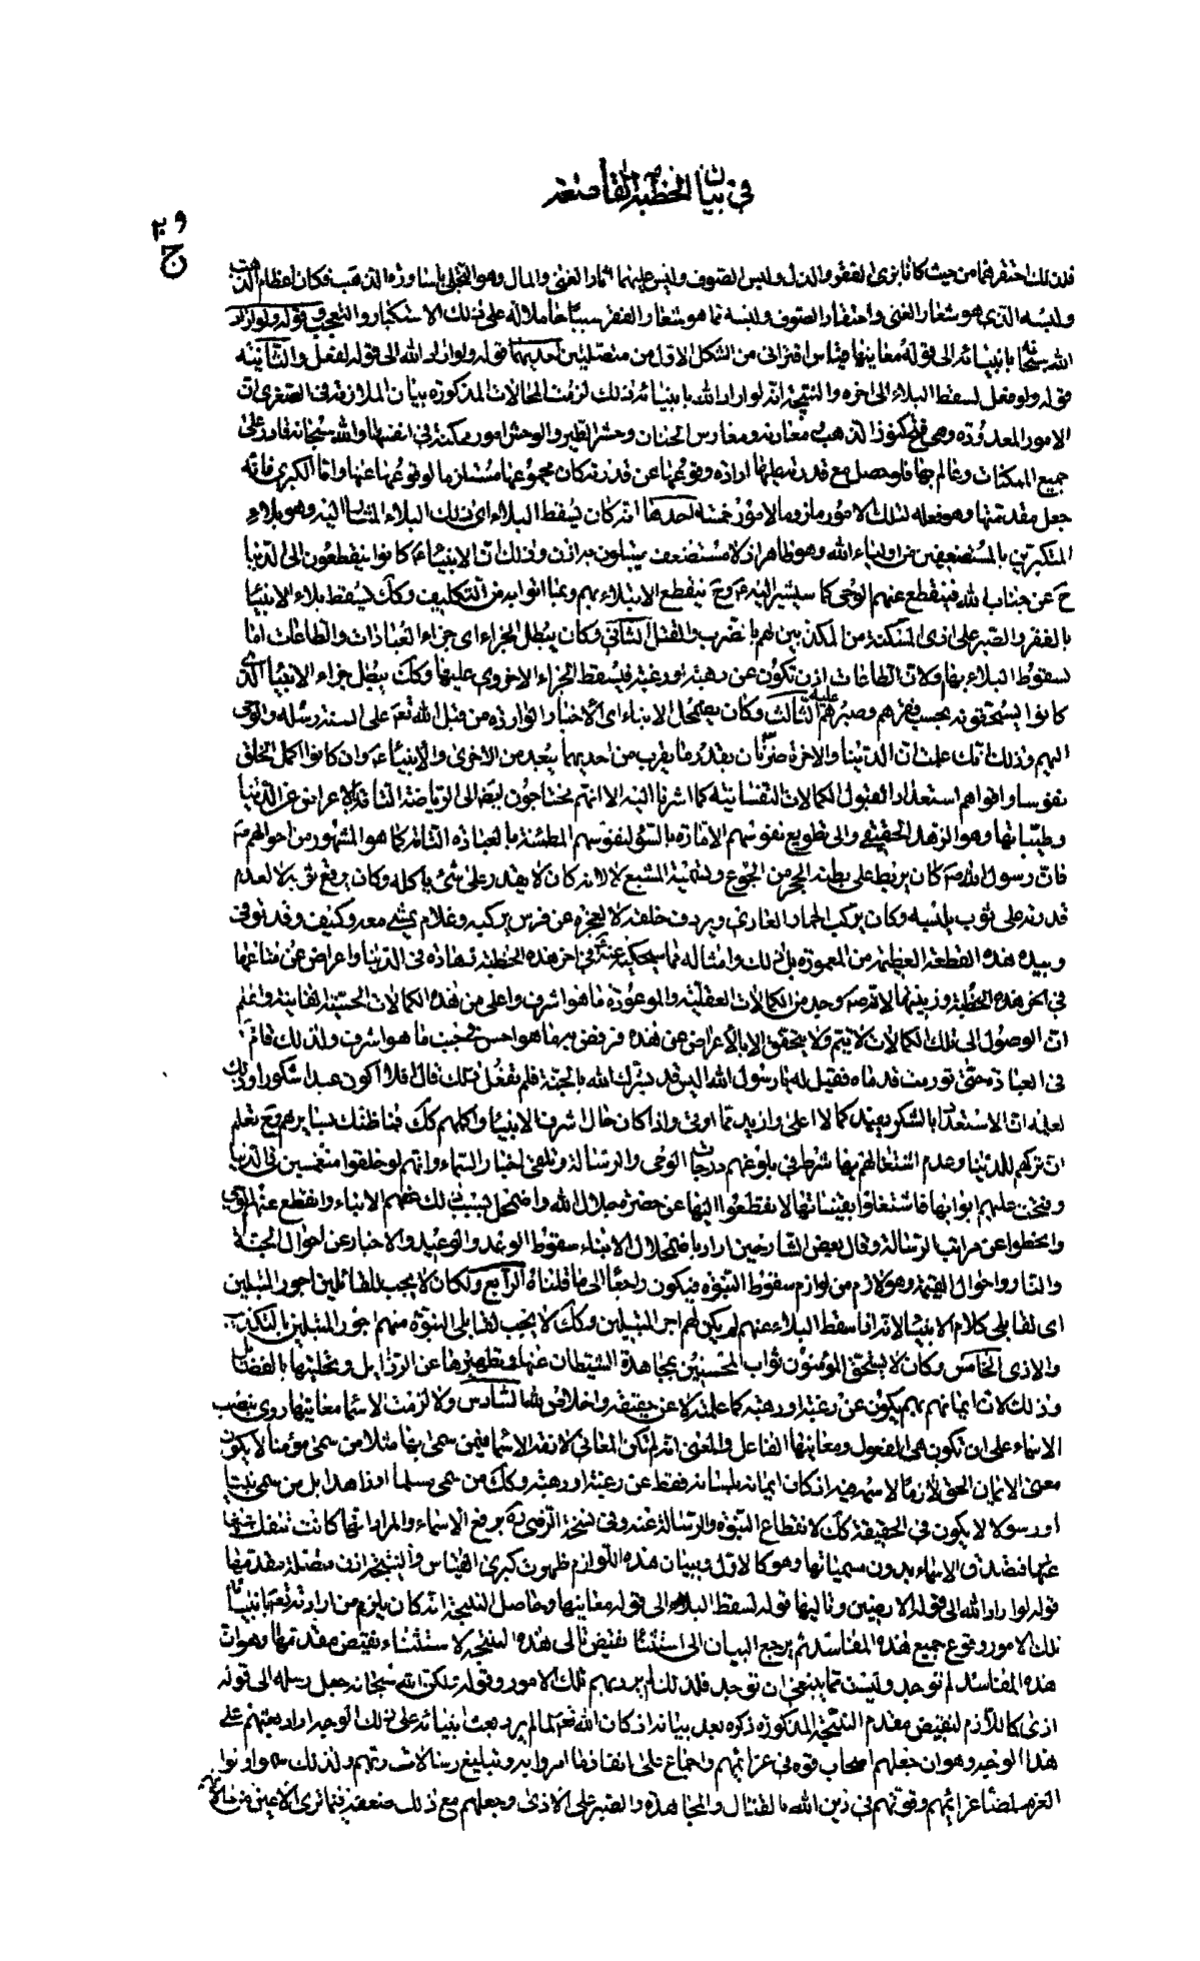 في بيان الخطبة القاصعة
ج
فلذلك احتقرهما من حيث كانا بزي الفقر والذل ولبس الصوف وليس عليهما آثار الغنى والمال وهو التحلي باساورة الذهب فكان اعظام الذهب
ولبسه الذي هو شعار الغنى واحتقار الصوف ولبسه مما هو شعار الفقر سببا حاملا له على ذلك الاستكبار والتعجب وقوله ولو اراد
الله سبحانه بانبيائه الى قوله معانيها قياس اقتراني من الشكل الاول من متصلتين احديهما قوله ولو اراد الله الى قوله لفعل والثانية
قوله ولو فعل لسقط البلاء الى اخره والنتيجة انه لو اراد الله بانبيائه ذلك لزمت المحالات المذكورة بيان الملازمة في الصغرى ان
الامور المعدودة وهي فتح كنوز الذهب ومعادنه ومغارس الجنان وحشر الطير والوحش امور ممكنة في انفسها والله سبحانه قادر على
جميع الممكنات وعالم بها فلو حصل مع قدرته عليها ارادة وقوعها عن قدرته كان مجموعها مستلزما لوقوعها عنها واما الكبرى فانه
جعل مقدمتها وهو فعله لتلك الامور ملزوما لامور خمسة احدها انه كان يسقط البلاء اي ذلك البلاء المشار اليه وهو بلاء
المتكبرين بالمستضعفين من اولياء الله وهو ظاهر اذ لا مستضعف يبتلون به اذن وذلك ان الانبياء ع كانوا ينقطعون الى الدنيا
ح عن جناب الله فينقطع عنهم الوحي كما سيشير اليه ع وح ينقطع الابتلاء بهم وبما اتوا به من التكليف وكك يسقط بلاء الانبياء
بالفقر والصبر على اذى المسكنة من المكذبين لهم بالضرب والقتل الثاني وكان يبطل الجزاء اي جزاء العبادات والطاعات اما
لسقوط البلاء بها ولان الطاعات اذن تكون عن رهبة او رغبة فيسقط الجزاء الاخروي عليها وكك يبطل جزاء الانبياء الذي
كانوا يستحقونه بحسب فقرهم وصبرهم عليه الثالث وكان يضمحل الانباء اي الاخبار الواردة من قبل الله تعم على السنة رسله والوحي
اليهم وذلك انك علمت ان الدنيا والاخرة ضرتان بقدر ما يقرب من احديهما يبعد من الاخرى والانبياء ع وان كانوا اكمل الخلق
نفوسا واقواهم استعدادا لقبول الكمالات النفسانية كما اشرنا اليه الا انهم محتاجون ايضا الى الرياضة التامة بالاعراض عن الدنيا
وطيباتها وهو الزهد الحقيقي والى تطويع نفوسهم الامارة بالسوء لنفوسهم المطمئنة بالعبادة التامة كما هو المشهور من احوالهم ع
فان رسول الله ص كان يربط على بطنه الحجر من الجوع ويسميه المشبع لا لانه كان لا يقدر على شئ ياكله وكان يرقع ثوبه لا لعدم
قدرته على ثوب يلبسه وكان يركب الحمار العاري ويردف خلفه لا لعجزه عن فرس يركبه وغلام يمشي معه وكيف وقد توفي
وبيده هذه القطعة العظيمة من المعمورة بل ذلك وامثاله مما سيحكيه عنه في اخر هذه الخطبة زهادة في الدنيا واعراض عن متاعها
في اخر هذه الخطبة وزينتها لانه ص وجد من الكمالات العقلية والموعودة ما هو اشرف واعلى من هذه الكمالات الحسية الفانية واعلم
ان الوصول الى تلك الكمالات لا يتم ولا يتحقق الا بالاعراض عن هذه فرفض ما هو اخس في جنب ما هو اشرف ولذلك قام
في العبادة حتى تورمت قدماه فقيل له يا رسول الله اليس قد بشرك الله بالجنة فلم تفعل ذلك قال افلا اكون عبدا شكورا وذلك
لعلمه ان الاستعداد بالشكر يفيد كمالا اعلى وازيد مما اوتي واذا كان حال اشرف الانبياء واكملهم كك فما ظنك بسايرهم وح تعلم
ان تركهم للدنيا وعدم اشتغالهم بها شرط في بلوغهم درجات الوحي والرسالة وتلقي اخبار السماء وانهم لو خلقوا منغمسين في الدنيا
وفتحت عليهم ابوابها فاشتغلوا بقيناتها لانقطعوا اليها عن حضرة جلال الله واضمحل بسبب ذلك عنهم الانباء وانقطع عنهم الوحي
وانحطوا عن مراتب الرسالة وقال بعض الشارحين اراد باضمحلال الانباء سقوط الوعد والوعيد والاخبار عن احوال الجنة
والنار واحوال القيمة وهو لازم من لوازم سقوط النبوة فيكون راجعا الى ما قلناه الرابع ولكان لا يجب للقائلين اجور المبتلين
اي لقابلي كلام الانبياء لانه اذا سقط البلاء عنهم لم يكن لهم اجر المبتلين وكك لا يجب لقابلي النبوة منهم اجور المبتلين بالتكذيب
والاذى الخامس وكان لا يستحق المؤمنون ثواب المحسنين بمجاهدة الشيطان عنها وتطهيرها عن الرذايل وتحليتها بالفضايل
وذلك لان ايمانهم بهم يكون عن رغبة او رهبة كما علمت لا عن حقيقة واخلاص لله السادس ولا لزمت الاسماء معانيها روي بنصب
الاسماء على ان تكون هي المفعول ومعانيها الفاعل والمعنى انه لم تكن المعاني لازمة الاسماء فيمن سمى بها مثلا من سمى مؤمنا لا يكون
معنى الايمان الحق لازما لاسمه فيه اذ كان ايمانه بلسانه فقط عن رغبة او رهبة وكك من سمي مسلما او زاهدا بل من سمي نبيا
او رسولا لا يكون في الحقيقة كك لانقطاع النبوة والرسالة عنه وفي نسخة الرضي ره برفع الاسماء والمراد انها كانت تنفك
عنها فتصدق الاسماء بدون مسمياتها وهو كالاول وببيان هذه اللوازم ظهرت كبرى القياس والنتيجة اذن متصلة مقدمها
قوله لو اراد الله الى قوله الارضين وتاليها قوله لسقط البلاء الى قوله معانيها وحاصل النتيجة انه كان يلزم من ارادته تعم بانبيائه
تلك الامور وقوع جميع هذه المفاسد ثم يرجع البيان الى استثناء نقيض تالي هذه النتيجة لاستثناء نقيض مقدمها وهو ان
هذه المفاسد لم توجد وليست مما ينبغي ان توجد فلذلك لم يرد بهم تلك الامور وقوله ولكن الله سبحانه جعل رسله الى قوله
اذى كاللازم لنقيض مقدم النتيجة المذكورة ذكره بعد بيانه اذ كان الله تعم لما لم يرد بعث انبيائه على ذلك الوجه اراد بعثهم على
هذا الوجه وهو ان جعلهم اصحاب قوة في عزائمهم واجماع على انفاذ ما امروا به وتبليغ رسالات ربهم ولذلك سموا اولوا
العزم لمضاء عزائمهم وقوتهم في دين الله بالقتال والمجاهدة والصبر على الاذى وجعلهم مع ذلك ضعفة فيما ترى الاعين من